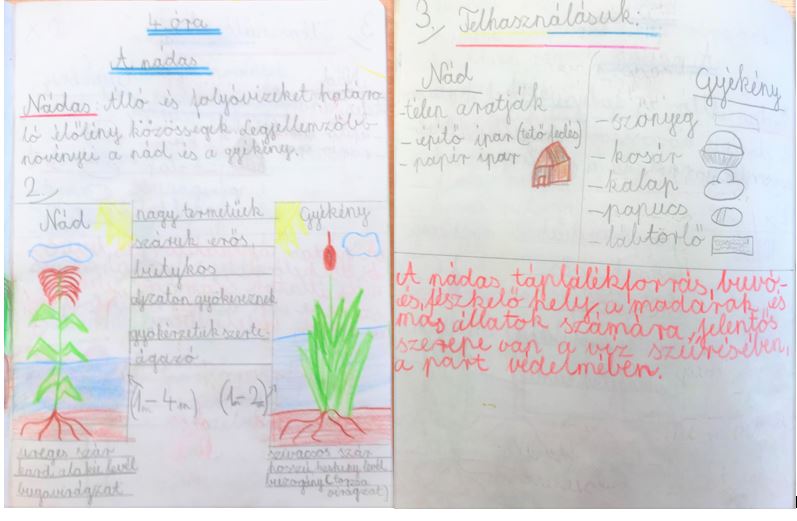 4. óra
A nádas
Nádas: Álló és folyóvizeket határo-
ló élőlény közösségek. Legjellemzőbb
növényei a nád és a gyékény.
2/
Nád
nagy termetűek
száruk erős,
bütykös
ajzaton gyökereznek
gyökérzetük szerte-
ágazó
(1m-4m) (1-2m)
Gyékény
üreges szár
kard alakú levél
bugavirágzat
szivacsos szár
hosszú keskeny levél
buzogány (torzsa
virágzat)
3./ Felhasználásuk:
Nád
-télen aratják
- építő ipar (tető fedés)
- papír ipar
Gyékény
- szőnyeg
- kosár
- kalap
- papucs
- lábtörlő
A nádas táplálékforrás, búvó-
és fészkelő hely a madarak és
más állatok számára, jelentős
szerepe van a víz szűrésében,
a part védelmében.